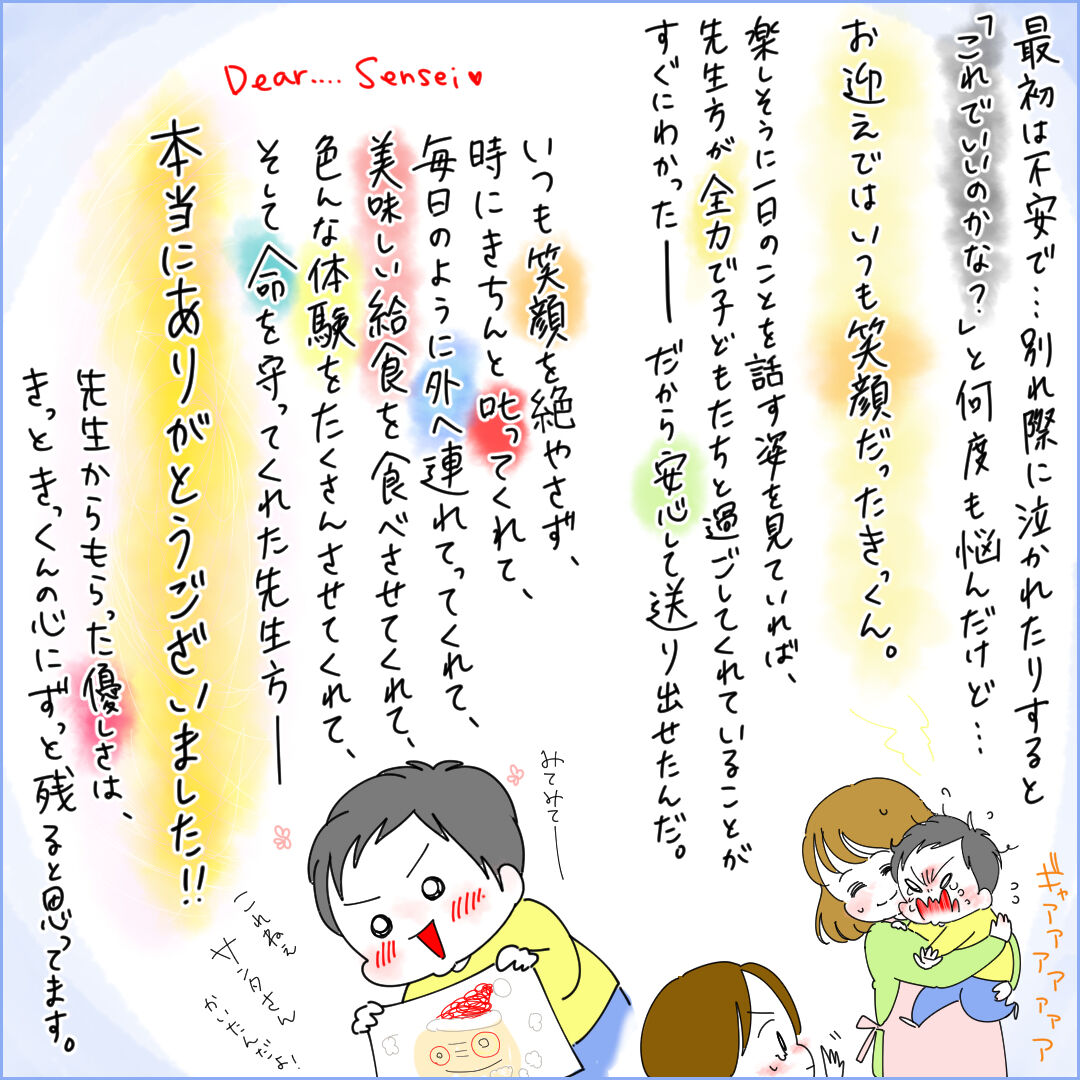 最初は不安で…別れ際に泣かれたりすると
「これでいいのかな？」と何度も悩んだけど…
お迎えではいつも笑顔だったきっくん。
楽しそうに一日のことを話す姿を見ていれば、
先生方が全力で子どもたちと過ごしてくれていることが
すぐにわかった――だから安心して送り出せたんだ。
ギャァァァァァァ
Dear.... Sensei♥
いつも笑顔を絶やさず、
時にきちんと叱ってくれて、
毎日のように外へ連れてってくれて、
美味しい給食を食べさせてくれて、
色んな体験をたくさんさせてくれて、
そして命を守ってくれた先生方――
本当にありがとうございました!!
先生からもらった優しさは、
きっときっくんの心にずっと残ると思ってます。
みてみてー
これねぇ
サンタさん
かいだんだよ!